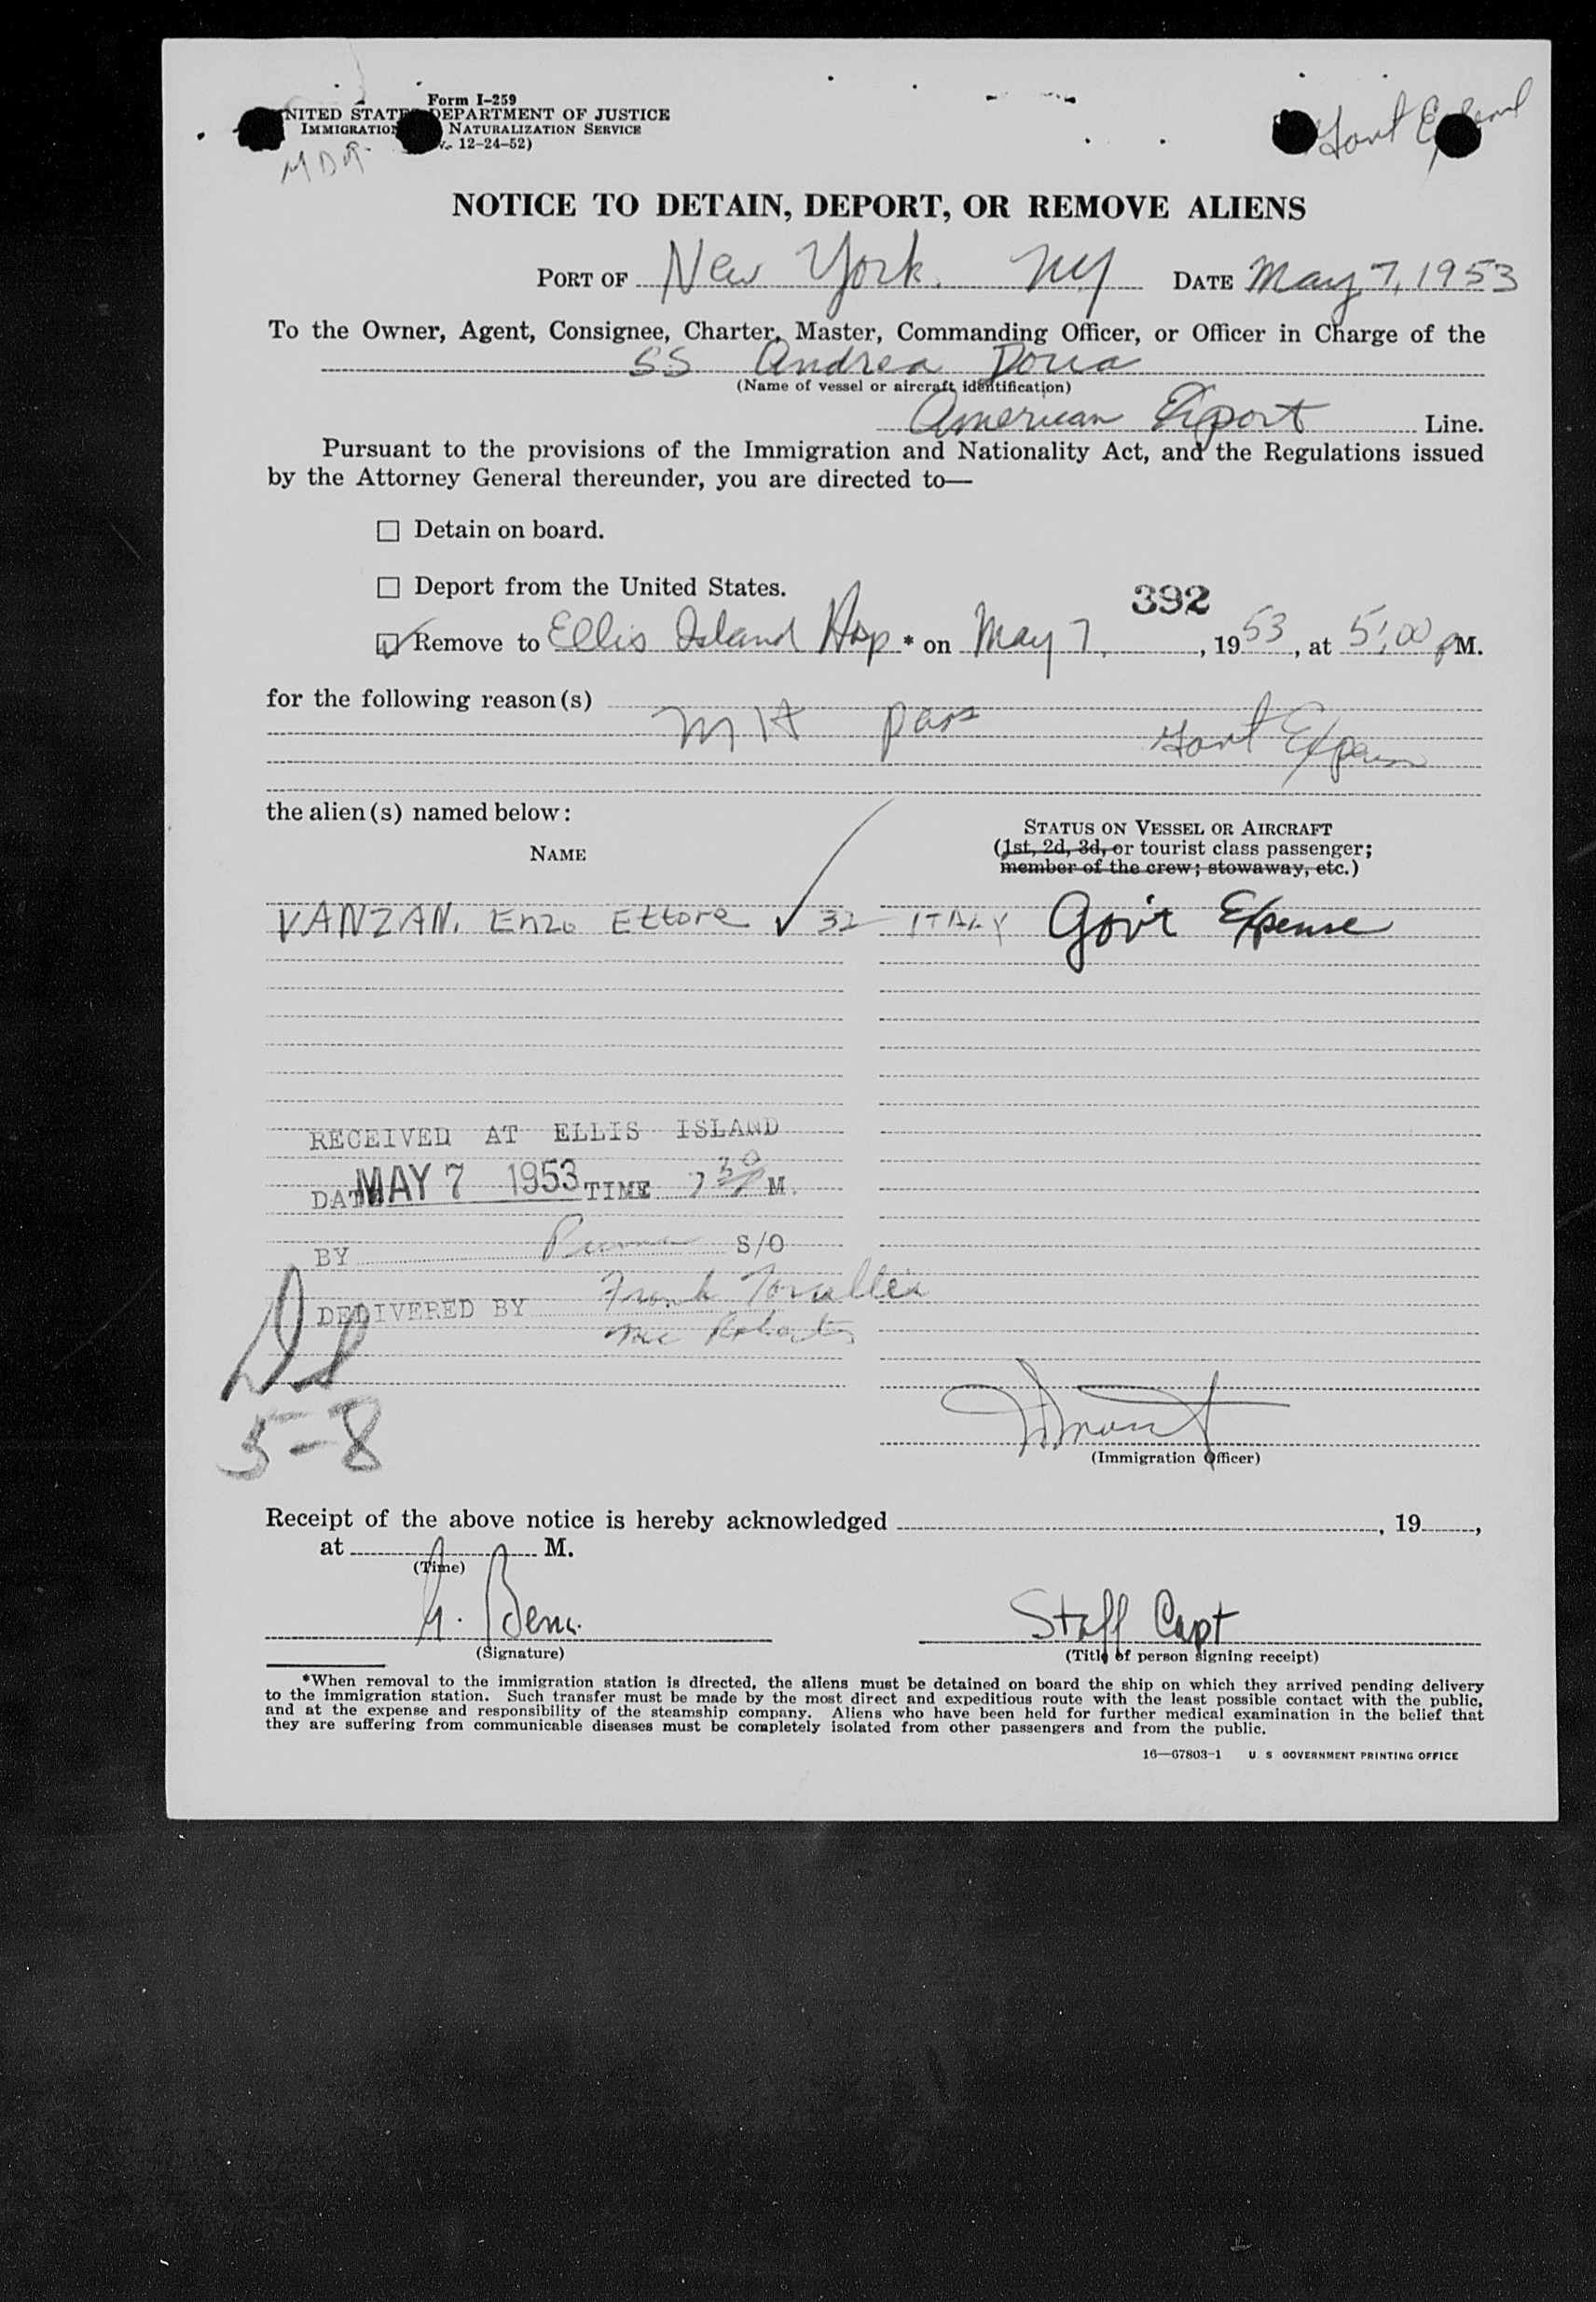 Form I-259
UNITED STATES DEPARTMENT OF JUSTICE
IMMIGRATION NATURALIZATION SERVICE
12-24-52)
Govt
NOTICE TO DETAIN, DEPORT, OR REMOVE ALIENS
PORT OF New York, NY DATE May 7, 1953
To the Owner, Agent, Consignee, Charter, Master, Commanding Officer, or Officer in Charge of the
SS Andrea Doria
(Name of vessel or aircraft identification)
American Export Line.
Pursuant to the provisions of the Immigration and Nationality Act, and the Regulations issued
by the Attorney General thereunder, you are directed to—
☐ Detain on board.
☐ Deport from the United States.
392
☑ Remove to Ellis Island Hosp * on May 7, , 1953, at 5:00 PM.
for the following reason(s)
pass Govt Expense
the alien(s) named below:
NAME
STATUS ON VESSEL OR AIRCRAFT
(1st, 2d, 3d, or tourist class passenger;
member of the crew; stowaway, etc.)
VANZAN, Enzo Ettore ✓ 32 ITALY Gov't Expense
RECEIVED AT ELLIS ISLAND
DATE MAY 7 1953 TIME 7 30 P M.
BY S/O
DELIVERED BY Frank
5-8
(Immigration Officer)
Receipt of the above notice is hereby acknowledged , 19 ,
at M.
(Time)
G.
Staff Capt
(Signature)
(Title of person signing receipt)
*When removal to the immigration station is directed, the aliens must be detained on board the ship on which they arrived pending delivery
to the immigration station. Such transfer must be made by the most direct and expeditious route with the least possible contact with the public,
and at the expense and responsibility of the steamship company. Aliens who have been held for further medical examination in the belief that
they are suffering from communicable diseases must be completely isolated from other passengers and from the public.
16—67803-1 U S GOVERNMENT PRINTING OFFICE